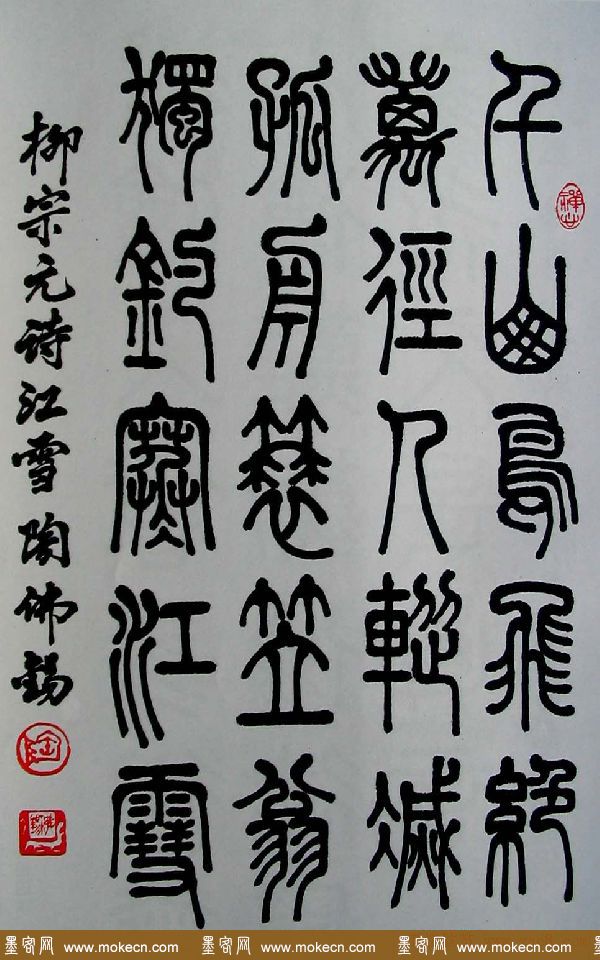 千山鳥飛絕
萬徑人蹤滅
孤舟蓑笠翁
獨釣寒江雪
柳宗元诗江雪陶佛錫
陶
墨客网 www.mokecn.com 墨客网 www.mokecn.com 墨客网 www.mokecn.com